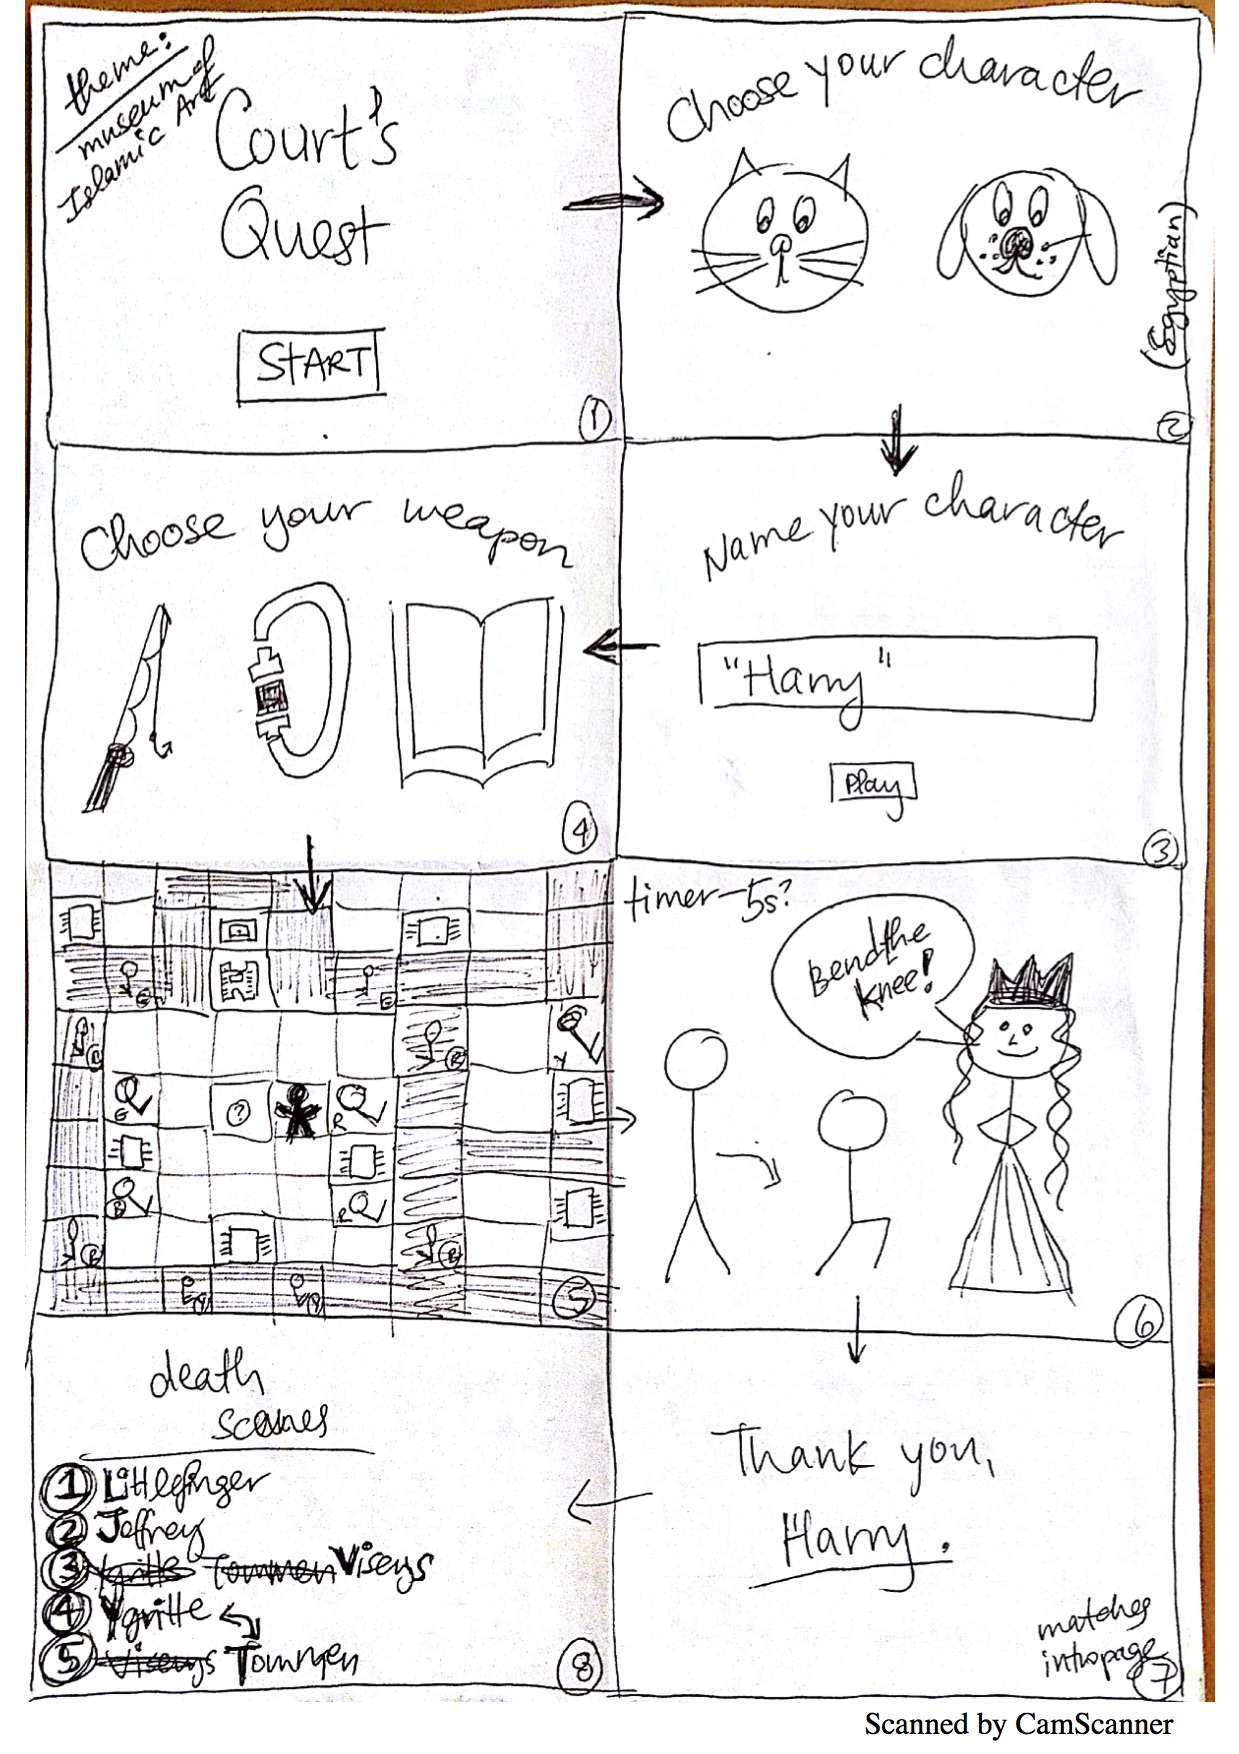 theme:
museum of
Islamic Art
Court's
Quest
START
1
Choose your character
(Egyptian)
2
Name your character
"Harry"
Play
3
Choose your weapon
4
?
G
G
B
R
Y
G
R
B
R
B
B
Y
Y
5
timer - 5s?
Bend the
knee!
6
Thank you,
Harry.
matches
intro page
7
death
scenes
1 Littlefinger
2 Joffrey
3 Ygritte Tommen Viserys
4 Ygritte
5 Viserys Tommen
8
Scanned by CamScanner